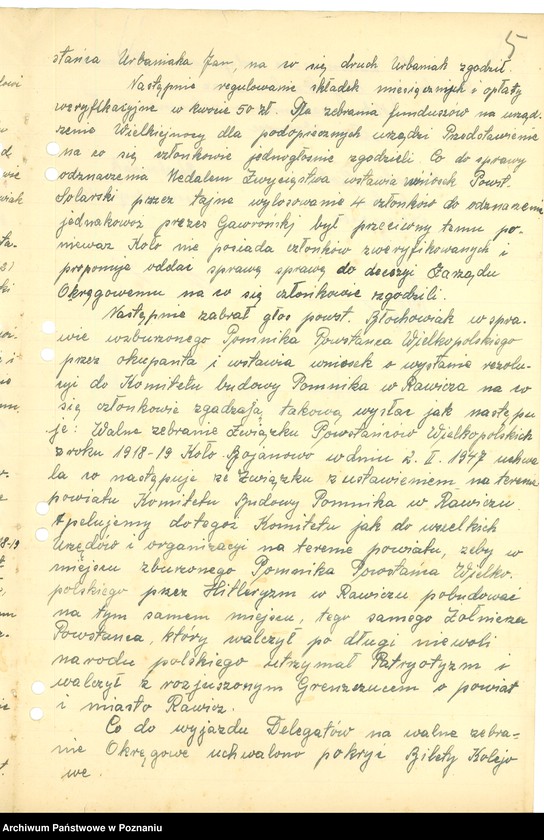 5
stańca Urbaniaka Jan, na co się druch Urbaniak zgodził.
Następnie regulowanie składek miesięcznych i opłaty
weryfikacyjne w kwocie 50 zł. Dla zebrania funduszów na urząd-
zenie Wielkiejnocy dla podopiecznych urządzi Przedstawienie
na co się członkowie jednogłośnie zgodzieli. Co do sprawy
odznaczenia Medalem Zwycięstwa wstawia wniosek Powst.
Solarski przez tajne wylosowanie 4 członków do odznaczenia
jednakowoż prezes Gaworońskj był przeciwny temu po-
nieważ Koło nie posiada członków zweryfikowanych i
proponuje oddać sprawę sprawę do decezyi Zarządu
Okręgowemu na co się członkowie zgodzili.
Następnie zabrał głos powst. Błochowiak w spra-
wie wzburzonego Pomnika Powstańca Wielkopolskiego
przez okupanta i wstawia wniosek o wysłanie rezolu-
cyi do Komitetu budowy Pomnika w Rawiczu na co
się członkowie zgadzają takową wysłać jak następu
je: Walne zebranie Związku Powstańców Wielkopolskich
z roku 1918-19 Koło Bojanowo w dniu 2. II. 1947 uchwa-
la co następuje ze Związku z ustawieniem na terenie
powiatu Komitetu Budowy Pomnika w Rawiczu
Apelujemy do tegoż Komitetu jak do wszelkich
Urzędów i organizacyi na terenie powiatu, żeby w
miejscu zburzonego Pomnika Powstańca Wielko.
polskiego przez Hitleryzm w Rawiczu pobudować
na tym samem miejscu, tego samego Żołnierza
Powstańca, który walczył po długi niewoli
narodu polskiego utrzymał Patryotyzm i
walczył z rozjuszonym Grenzszucem o powiat
i miasto Rawicz.
Co do wyjazdu Delegatów na walne zebra-
nie Okręgowe uchwalono pokryć Bilety Kolejo
we.
Archiwum Państwowe w Poznaniu